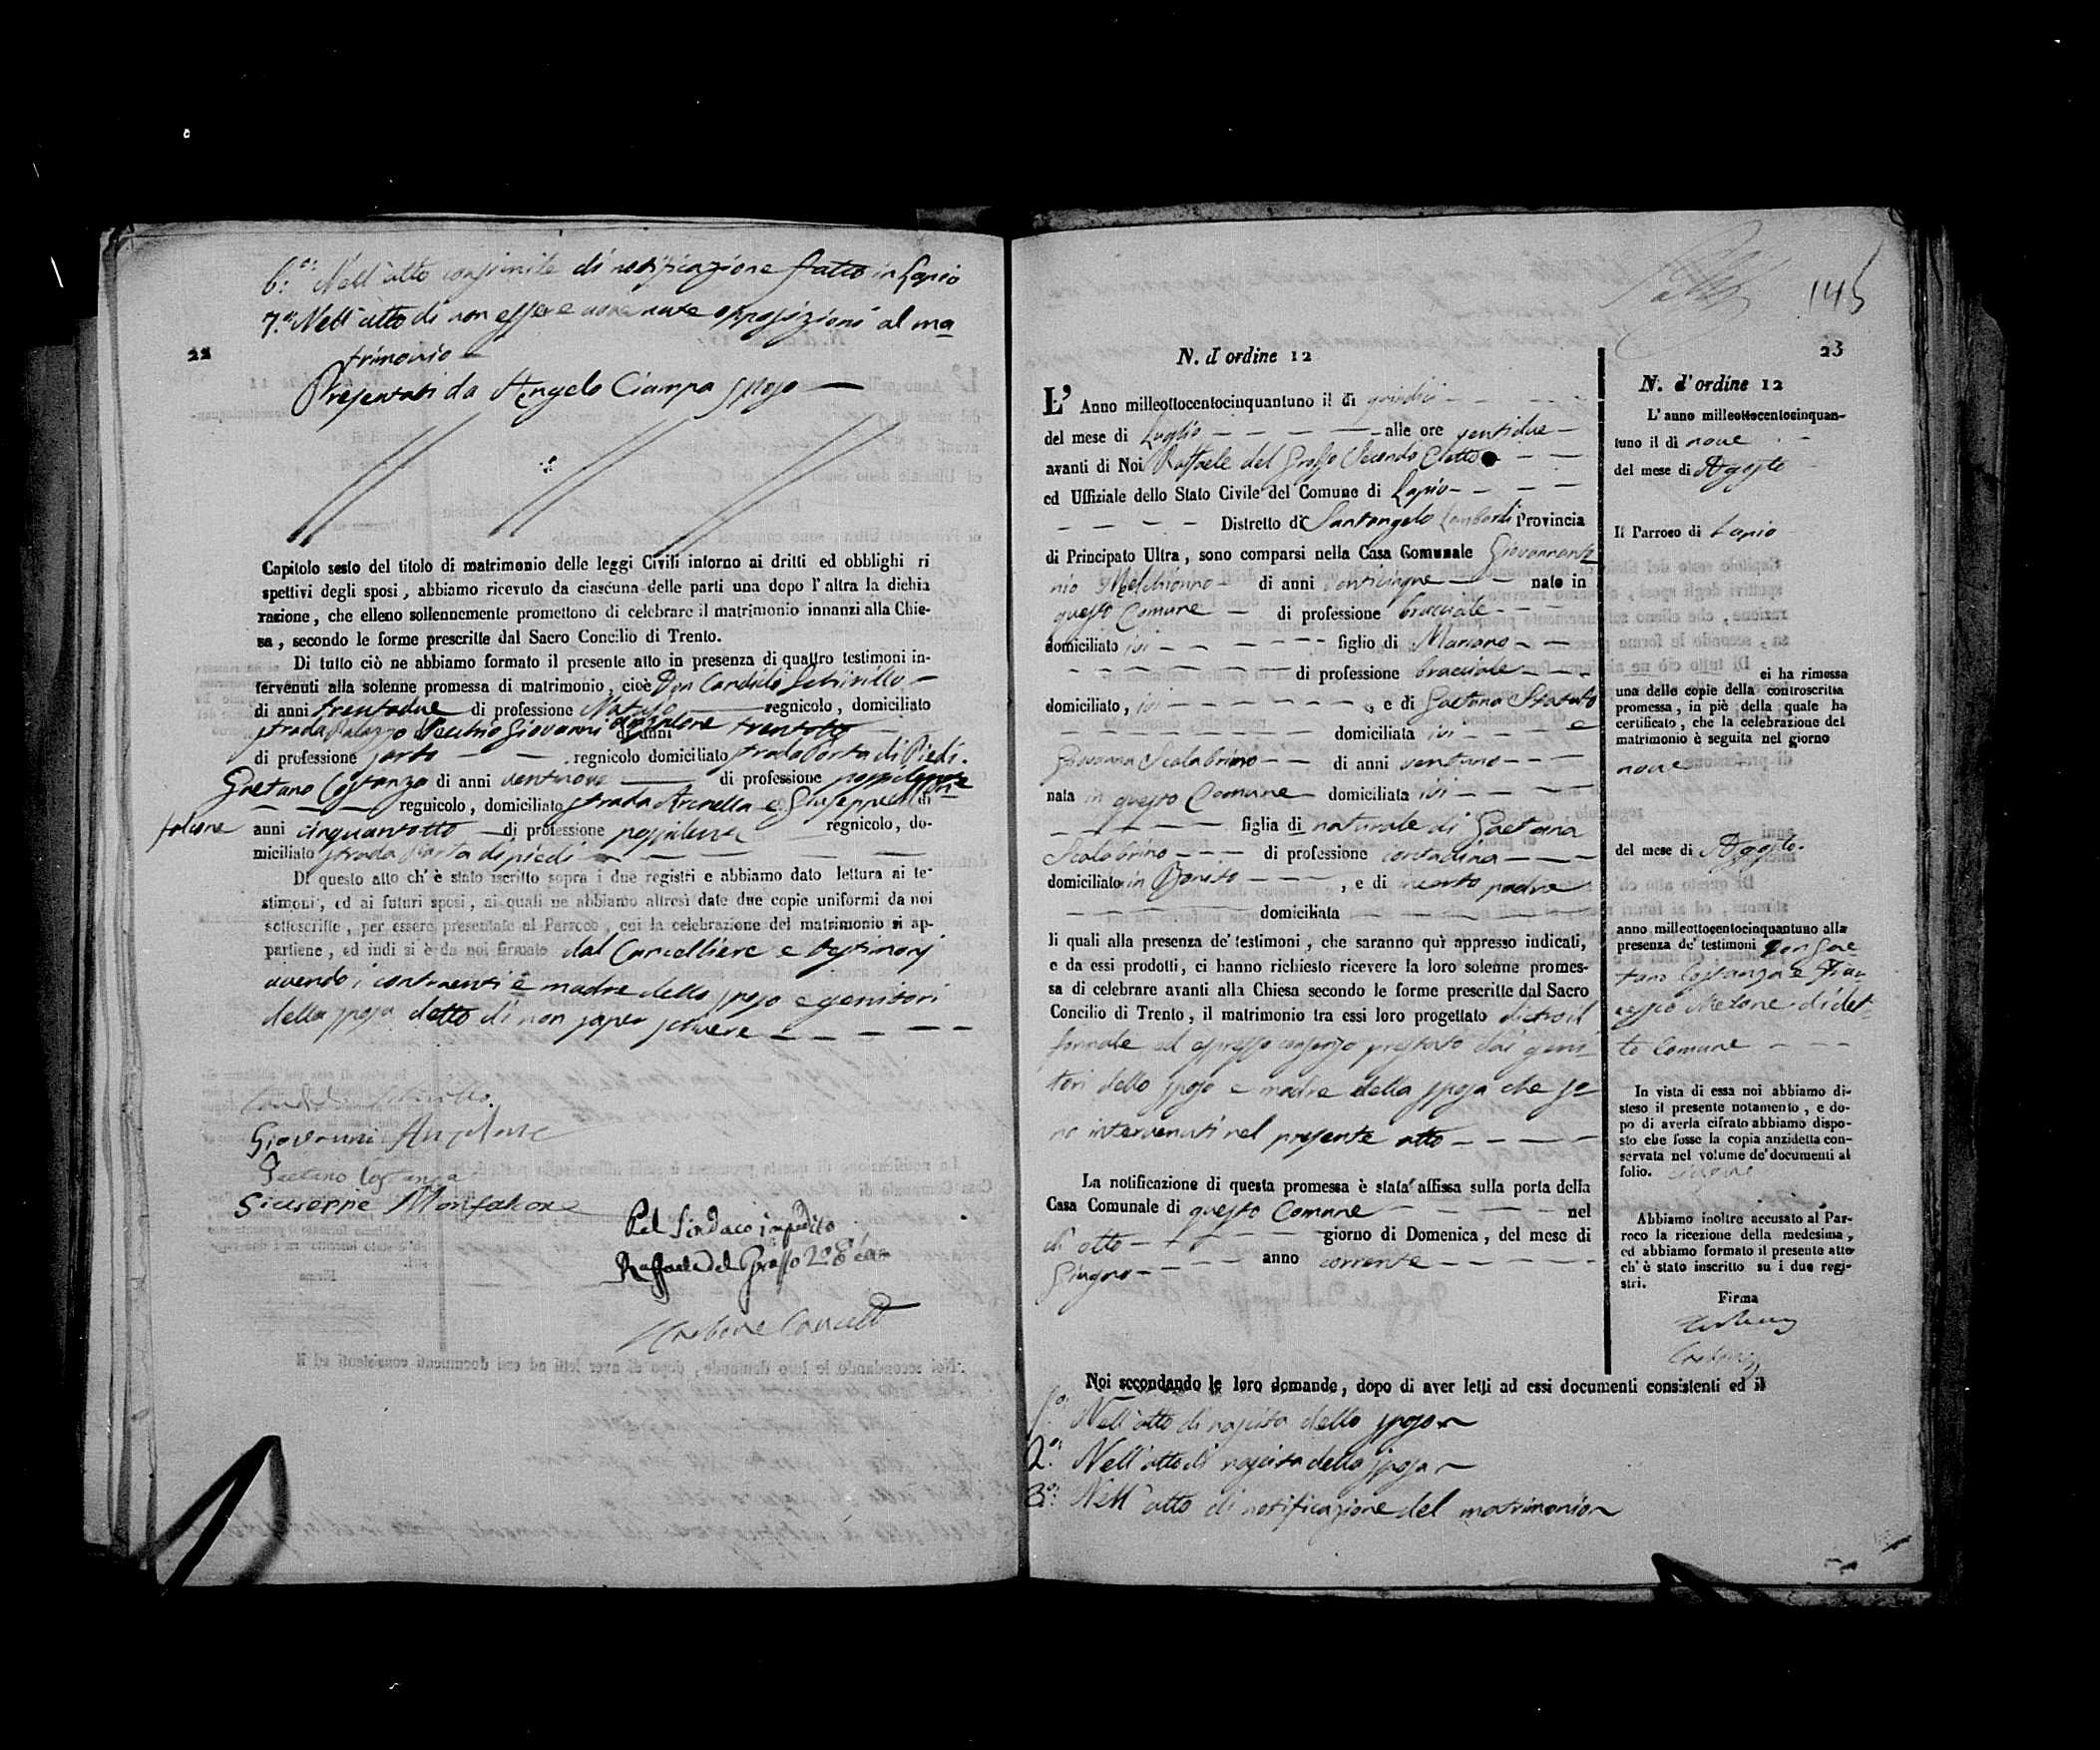 6.° Nell'atto consimile di notificazione fatto in Lapio
7.° Nell'atto di non essere avvenute opposizioni al ma
trimonio
22
Presentati da Angelo Ciampa sposo
Capitolo sesto del titolo di matrimonio delle leggi Civili intorno ai dritti ed obblighi ri
spettivi degli sposi, abbiamo ricevuto da ciascuna delle parti una dopo l'altra la dichia
razione, che elleno sollennemente promettono di celebrare il matrimonio innanzi alla Chie-
sa, secondo le forme prescritte dal Sacro Concilio di Trento.
Di tutto ciò ne abbiamo formato il presente atto in presenza di quattro testimoni in-
tervenuti alla solenne promessa di matrimonio, cioè Don Candido
di anni trentadue di professione Notajo regnicolo, domiciliato
strada Palazzo Vecchio Giovanni di anni trentotto
di professione sarto regnicolo domiciliato strada Porta di Piedi.
Gaetano Costanza di anni ventinove di professione possidente
regnicolo, domiciliato strada Arenella e Giuseppe Mon di
falcone anni cinquantotto di professione possidente regnicolo, do-
miciliato strada Porta di piedi
Di questo atto ch'è stato iscritto sopra i due registri e abbiamo dato lettura ai te-
stimoni, ed ai futuri sposi, ai quali ne abbiamo altresì date due copie uniformi da noi
sottoscritte, per essere presentate al Parroco, cui la celebrazione del matrimonio si ap-
partiene, ed indi si è da noi firmato dal Cancelliere e testimonj
avendo i contraenti e madre dello sposo e genitori
della sposa detto di non saper scrivere
Giovanni
Gaetano Costanza
Giuseppe Monfalcone
Pel Sindaco impedito
Raffaele del Grosso 2° E
Carbone Cancell
145
23
N. d'ordine 12
L'Anno milleottocentocinquantuno il di quindici
del mese di Luglio alle ore ventidue
avanti di Noi Raffaele del Grosso Secondo Eletto
ed Uffiziale dello Stato Civile del Comune di Lapio
Distretto di Santangelo Lombardi Provincia
di Principato Ultra, sono comparsi nella Casa Comunale Giovannanto
nio Melchionno di anni venticinque nato in
questo Comune di professione bracciale
domiciliato ivi figlio di Mariano
di professione bracciale
domiciliato, ivi, e di Gaetana
domiciliata ivi e
Giovanna Scalabrino di anni ventuno
nata in questo Comune domiciliata ivi
figlia di naturale di Gaetana
Scalabrino di professione contadina
domiciliato in Bonito, e di incerto padre
domiciliata
li quali alla presenza de' testimoni, che saranno quì appresso indicati,
e da essi prodotti, ci hanno richiesto ricevere la loro solenne promes-
sa di celebrare avanti alla Chiesa secondo le forme prescritte dal Sacro
Concilio di Trento, il matrimonio tra essi loro progettato dietro il
formale ed espresso consenso prestato dai geni
tori dello sposo e madre della sposa che so
no intervenuti nel presente atto
La notificazione di questa promessa è stata affissa sulla porta della
Casa Comunale di questo Comune nel
dì otto giorno di Domenica, del mese di
Giugno anno corrente
N. d'ordine 12
L'anno milleottocentocinquan-
tuno il di nove
del mese di Agosto
Il Parroco di Lapio
ci ha rimessa
una delle copie della controscritta
promessa, in piè della quale ha
certificato, che la celebrazione del
matrimonio è seguita nel giorno
nove
del mese di Agosto
anno milleottocentocinquantuno alla
presenza de' testimoni Don Gae
tano Costanza e
di det
to Comune
In vista di essa noi abbiamo di-
steso il presente notamento, e do-
po di averla cifrato abbiamo dispo-
sto che fosse la copia anzidetta con-
servata nel volume de' documenti al
folio.
Abbiamo inoltre accusato al Par-
roco la ricezione della medesima,
ed abbiamo formato il presente atto
ch'è stato inscritto su i due regi-
stri.
Firma
Noi secondando le loro domande, dopo di aver letti ad essi documenti consistenti ed il
1.° Nell'atto di nascita dello sposo
2.° Nell'atto di nascita della sposa
3.° Nell'atto di notificazione del matrimonio